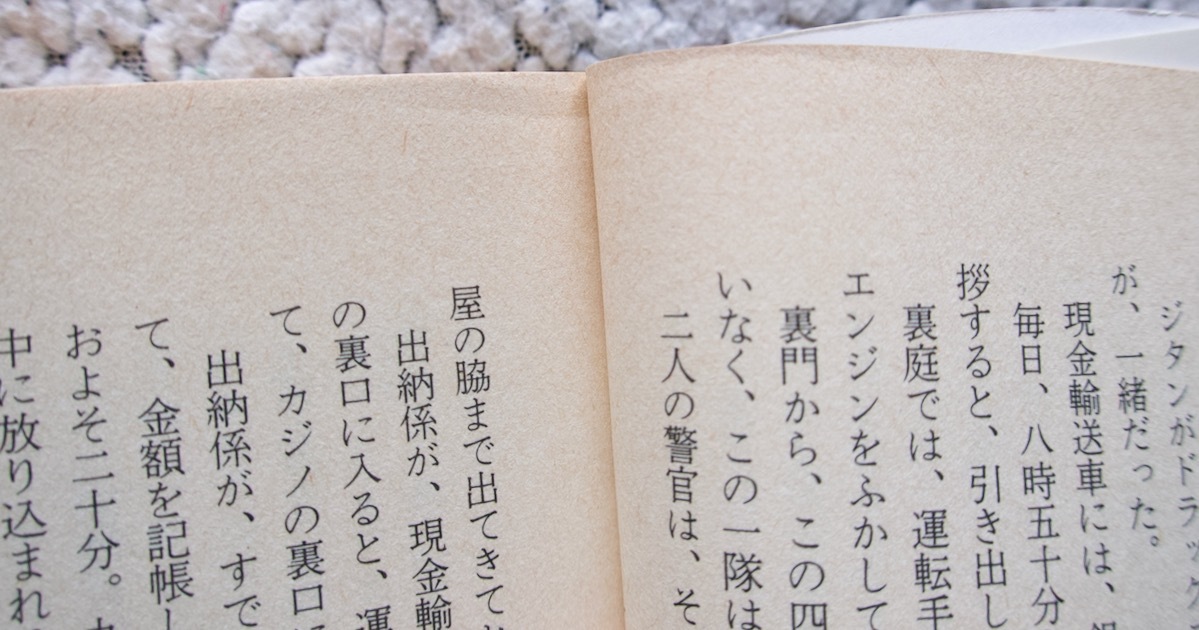 ジタンがドラッグ
が、一緒だった。
現金輸送車には、
毎日、八時五十分
拶すると、引き出し
裏庭では、運転手
エンジンをふかして
裏門から、この四
いなく、この一隊は
二人の警官は、そ
屋の脇まで出てきて
出納係が、現金輸
の裏口に入ると、運
て、カジノの裏口
出納係が、すで
て、金額を記帳し
およそ二十分。
中に放り込まれ